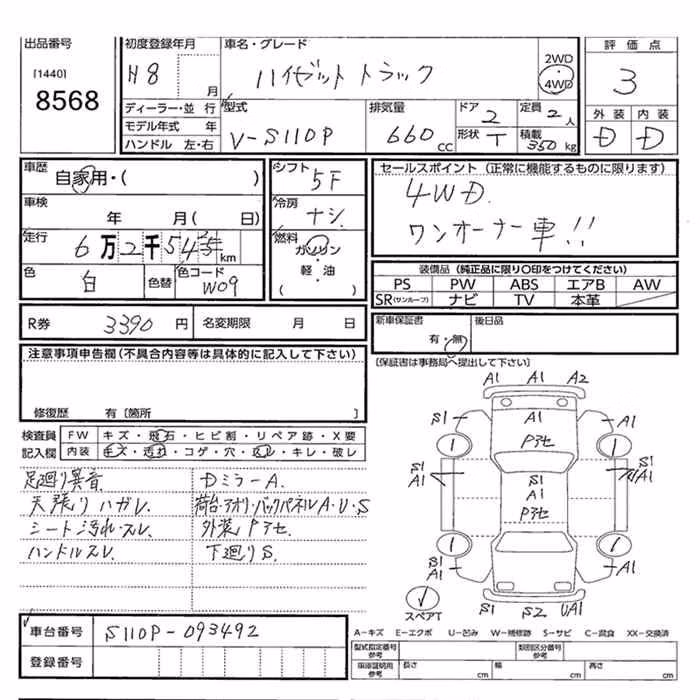 出品番号
[1440]
8568
初度登録年月
H8 月
車名・グレード
ハイゼットトラック
2WD
4WD
評価点
3
外装 内装
D D
ディーラー・並 行
モデル年式 年
ハンドル 左・右
型式
V-S110P
排気量
660 cc
ドア 2
形状 T
定員 2 人
積載 350 kg
車歴
自家用・( )
車検
年 月( 日)
走行
6万2千545km
色 白
色替
色コード W09
シフト 5F
冷房 ナシ
燃料
ガソリン
軽・油
( )
セールスポイント(正常に機能するものに限ります)
4WD.
ワンオーナー車!!
装備品(純正品に限り○印をつけてください)
PS PW ABS エアB AW
SR(サンルーフ) ナビ TV 本革
R券 3390 円 名変期限 月 日
新車保証書
有・無
後日品
(保証書は事務局へ提出して下さい)
注意事項申告欄(不具合内容等は具体的に記入して下さい)
修復歴 有〔箇所 〕
検査員
記入欄
FW キズ・飛石・ヒビ割・リペア跡・X要
内装 キズ・汚れ・コゲ・穴・スレ・キレ・破レ
足廻り異音
天張りハガレ
シート汚れ・スレ
ハンドルスレ
Dミラー A.
荷台・アオリ・バックパネル A・U・S
外装Pアセ
下廻りS.
A1 A1 A2
S1 A1 A1
Pアセ
S1
A1
S1
A1
S1
A1
Pアセ
S1
A1
A1
S1 S2 UA1
スペアT
車台番号 S110P-093492
登録番号
A-キズ E-エクボ U-凹み W-補修跡 S-サビ C-腐食 XX-交換済
型式指定番号
参考
類別区分番号
参考
車庫証明用
参考
長さ cm 幅 cm 高さ cm